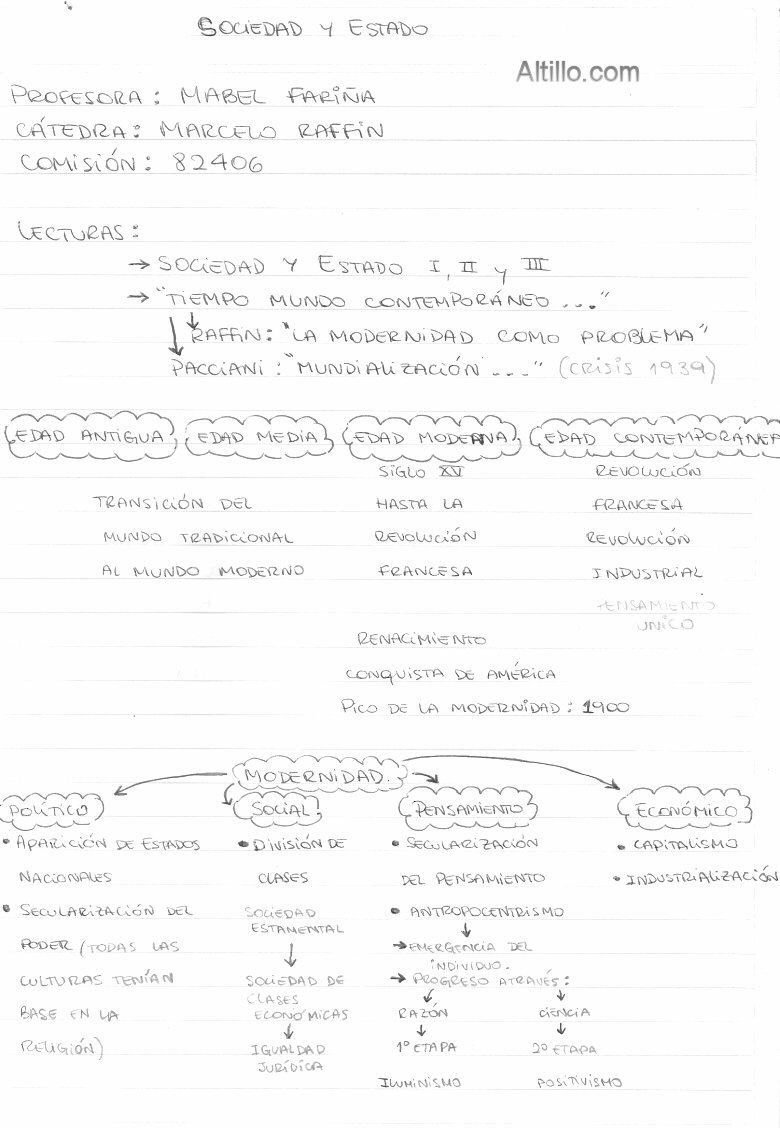 SOCIEDAD Y ESTADO
Altillo.com
PROFESORA: MABEL FARIÑA
CÁTEDRA: MARCELO RAFFIN
COMISIÓN: 82406
LECTURAS:
→ SOCIEDAD Y ESTADO I, II y III
→ "TIEMPO MUNDO CONTEMPORÁNEO..."
RAFFIN: "LA MODERNIDAD COMO PROBLEMA"
PACCIANI: "MUNDIALIZACIÓN..." (CRISIS 1939)
EDAD ANTIGUA EDAD MEDIA EDAD MODERNA EDAD CONTEMPORÁNEA
SIGLO XV REVOLUCIÓN
TRANSICIÓN DEL HASTA LA FRANCESA
MUNDO TRADICIONAL REVOLUCIÓN REVOLUCIÓN
AL MUNDO MODERNO FRANCESA INDUSTRIAL
PENSAMIENTO
UNICO
RENACIMIENTO
CONQUISTA DE AMÉRICA
PICO DE LA MODERNIDAD: 1900
MODERNIDAD
POLÍTICO SOCIAL PENSAMIENTO ECONÓMICO
• APARICIÓN DE ESTADOS • DIVISIÓN DE • SECULARIZACIÓN • CAPITALISMO
NACIONALES CLASES DEL PENSAMIENTO • INDUSTRIALIZACIÓN
• SECULARIZACIÓN DEL SOCIEDAD • ANTROPOCENTRISMO
ESTAMENTAL
PODER (TODAS LAS → EMERGENCIA DEL
INDIVIDUO.
CULTURAS TENÍAN SOCIEDAD DE → PROGRESO ATRAVÉS:
CLASES
BASE EN LA ECONÓMICAS RAZÓN CIENCIA
RELIGIÓN) IGUALDAD 1º ETAPA 2º ETAPA
JURÍDICA
ILUMINISMO POSITIVISMO